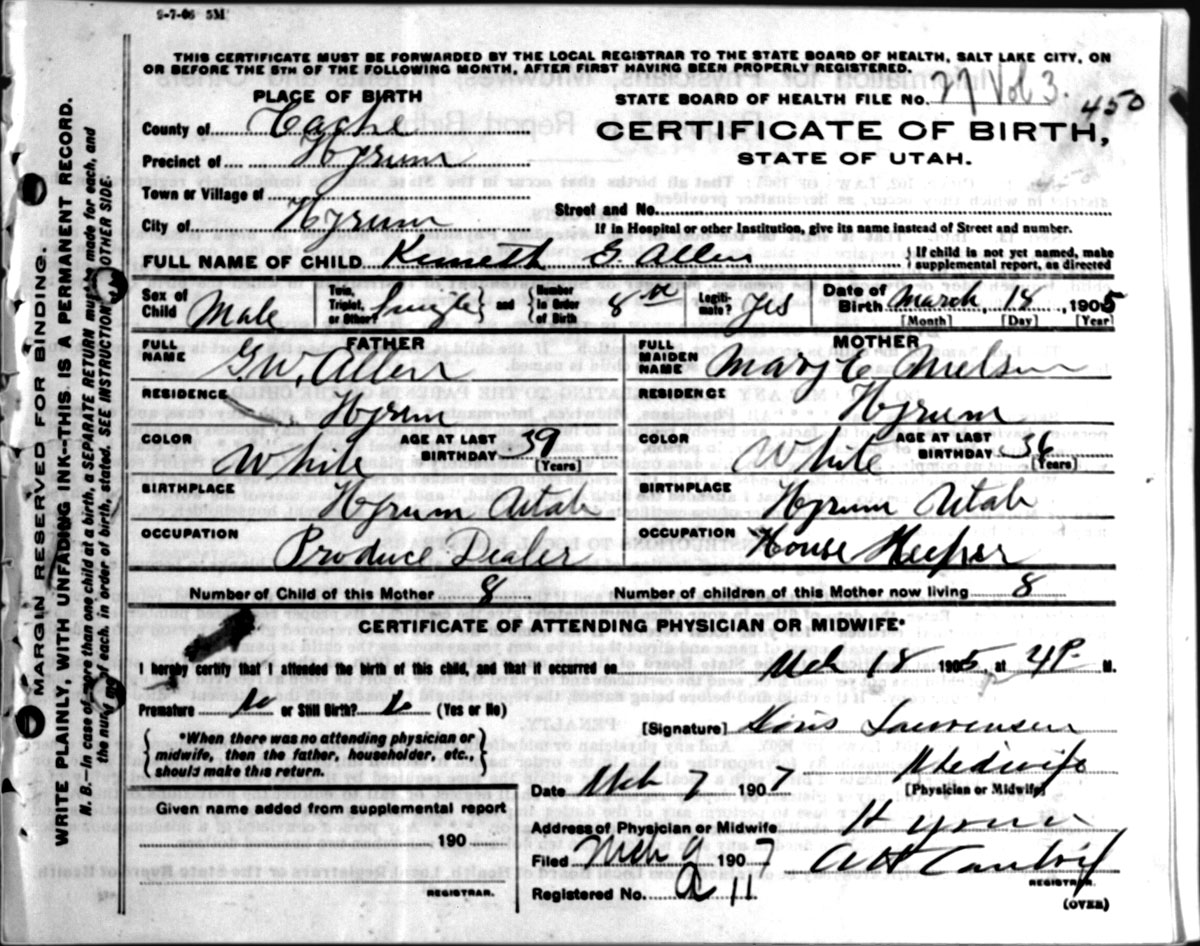 9-7-06 5M
THIS CERTIFICATE MUST BE FORWARDED BY THE LOCAL REGISTRAR TO THE STATE BOARD OF HEALTH, SALT LAKE CITY, ON
OR BEFORE THE 5TH OF THE FOLLOWING MONTH, AFTER FIRST HAVING BEEN PROPERLY REGISTERED.
PLACE OF BIRTH
STATE BOARD OF HEALTH FILE NO. 77 Vol 3. 450
County of Cache
CERTIFICATE OF BIRTH,
Precinct of Hyrum
STATE OF UTAH.
Town or Village of
Street and No.
City of Hyrum
If in Hospital or other Institution, give its name instead of Street and number.
FULL NAME OF CHILD Kenneth G Allen
If child is not yet named, make supplemental report, as directed
Sex of Child Male
Twin, Triplet, or Other? Single and Number in Order of Birth 8th
Legitimate? Yes
Date of Birth March 18, 1905
[Month] [Day] [Year]
FATHER
FULL NAME G.W. Allen
RESIDENCE Hyrum
COLOR White AGE AT LAST BIRTHDAY 39 [Years]
BIRTHPLACE Hyrum Utah
OCCUPATION Produce Dealer
MOTHER
FULL MAIDEN NAME Mary E Nielsen
RESIDENCE Hyrum
COLOR White AGE AT LAST BIRTHDAY 36 [Years]
BIRTHPLACE Hyrum Utah
OCCUPATION House Keeper
Number of Child of this Mother 8 Number of children of this Mother now living 8
CERTIFICATE OF ATTENDING PHYSICIAN OR MIDWIFE*
I hereby certify that I attended the birth of this child, and that it occurred on Mch 18 1905, at 4 P. M.
Premature No or Still Birth? (Yes or No)
[Signature]
*When there was no attending physician or
midwife, then the father, householder, etc.,
should make this return.
Midwife
Date Mch 7 1907 [Physician or Midwife]
Given name added from supplemental report
190
REGISTRAR.
Address of Physician or Midwife Hyrum
Filed Mch 9 1907
REGISTRAR.
Registered No. 11
(OVER)
MARGIN RESERVED FOR BINDING.
WRITE PLAINLY, WITH UNFADING INK--THIS IS A PERMANENT RECORD.
N. B.--In case of more than one child at a birth, a SEPARATE RETURN must be made for each, and
the number of each, in order of birth, stated. SEE INSTRUCTION OTHER SIDE.